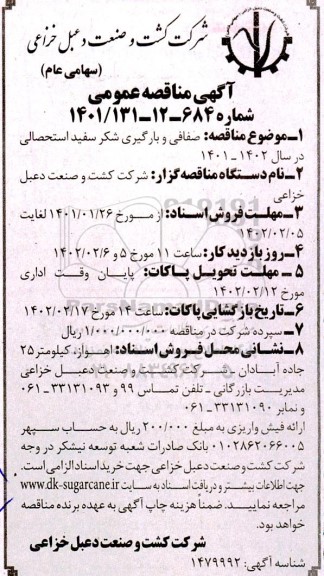 شرکت کشت و صنعت دعبل خزاعی
(سهامی عام)
آگهی مناقصه عمومی
شماره ۶۸۴-۱۲-۱۴۰۱/۱۳۱
۱-موضوع مناقصه: صفافی و بارگیری شکر سفید استحصالی
در سال ۱۴۰۲ - ۱۴۰۱
۲-نام دستگاه مناقصه گزار: شرکت کشت و صنعت دعبل
خزاعی
۳-مهلت فروش اسناد: از مورخ ۱۴۰۱/۰۱/۲۶ لغایت
۱۴۰۲/۰۲/۰۵
۴-روز بازدید کار: ساعت ۱۱ مورخ ۵ و ۱۴۰۲/۰۲/۶
۵- مهلت تحویل پاکات: پایان وقت اداری
مورخ ۱۴۰۲/۰۲/۱۲
۶-تاریخ بازگشایی پاکات: ساعت ۱۴ مورخ ۱۴۰۲/۰۲/۱۷
۷- سپرده شرکت در مناقصه ۱/۰۰۰/۰۰۰/۰۰۰ ریال
۸-نشانی محل فروش اسناد: اهواز، کیلومتر ۲۵
جاده آبادان - شرکت کشت و صنعت دعبل خزاعی
مدیریت بازرگانی - تلفن تماس ۹۹ و ۳۳۱۳۱۰۹۳-۰۶۱
و نمابر ۳۳۱۳۱۰۹۰-۰۶۱
ارائه فیش واریزی به مبلغ ۲۰۰/۰۰۰ ریال به حساب سپهر
۰۱۰۲۸۶۲۰۶۶۰۰۵ بانک صادرات شعبه توسعه نیشکر در وجه
شرکت کشت و صنعت دعبل خزاعی جهت خرید اسناد الزامی است.
جهت اطلاعات بیشتر و دریافت اسناد به سایت www.dk-sugarcane.ir
مراجعه نمایید. ضمناً هزینه چاپ آگهی به عهده برنده مناقصه
خواهد بود.
شرکت کشت و صنعت دعبل خزاعی
شناسه آگهی: ۱۴۷۹۹۹۲